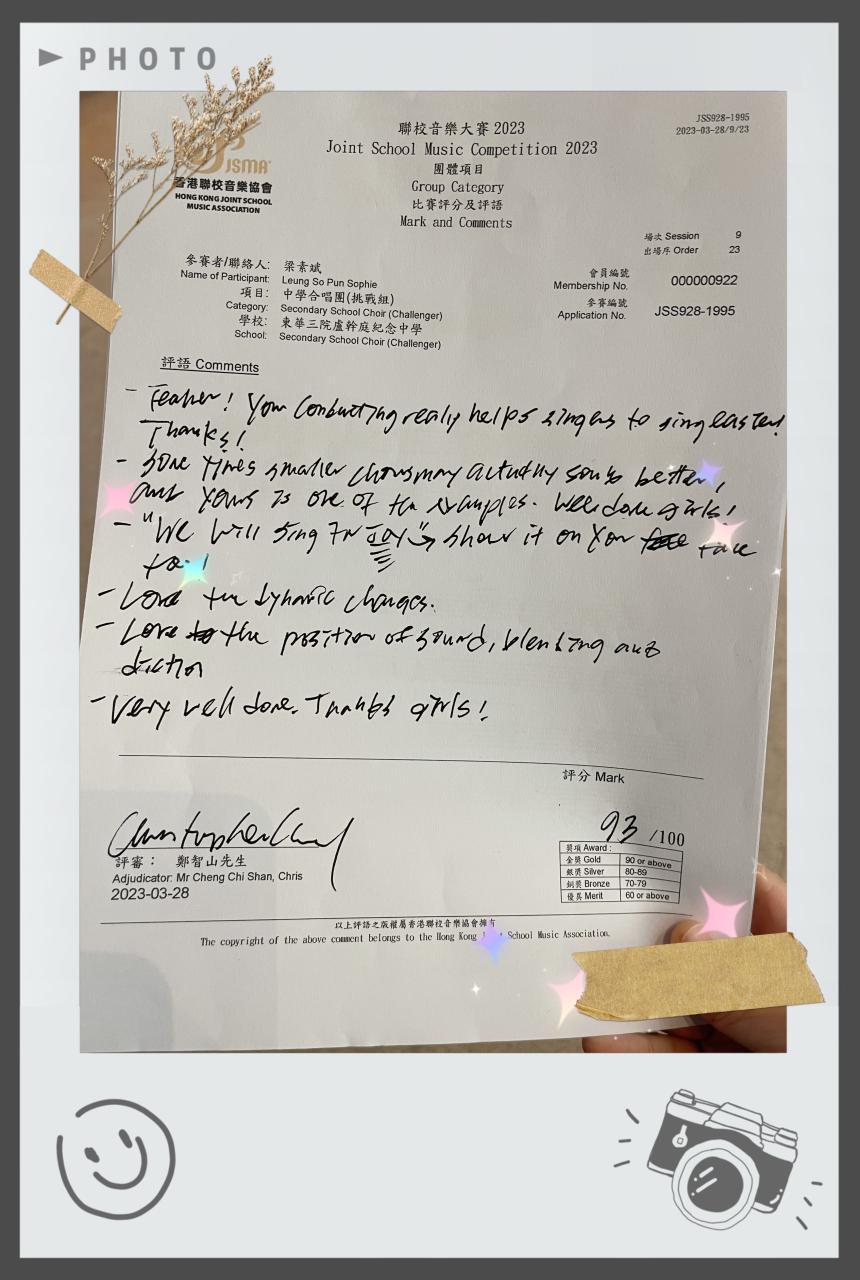 PHOTO
JSMA
香港聯校音樂協會
HONG KONG JOINT SCHOOL
MUSIC ASSOCIATION
聯校音樂大賽 2023
Joint School Music Competition 2023
團體項目
Group Category
比賽評分及評語
Mark and Comments
JSS928-1995
2023-03-28/9/23
場次 Session 9
出場序 Order 23
參賽者/聯絡人: 梁素斌
Name of Participant: Leung So Pun Sophie
項目: 中學合唱團(挑戰組)
Category: Secondary School Choir (Challenger)
學校: 東華三院盧幹庭紀念中學
School: Secondary School Choir (Challenger)
會員編號
Membership No. 000000922
參賽編號
Application No. JSS928-1995
評語 Comments
- Teacher! Your conducting really helps singers to sing easier!
Thanks!
- Some times smaller choirs may actually sounds better,
and yours is one of the examples. Well done girls!
- "We will sing for Joy" → show it on your face
too!
- Love the dynamic changes.
- Love the position of sound, blending and
diction
- Very well done. Thanks girls!
評分 Mark
93 /100
獎項 Award :
金獎 Gold 90 or above
銀獎 Silver 80-89
銅獎 Bronze 70-79
優異 Merit 60 or above
評審: 鄭智山先生
Adjudicator: Mr Cheng Chi Shan, Chris
2023-03-28
以上評語之版權屬香港聯校音樂協會擁有
The copyright of the above comment belongs to the Hong Kong Joint School Music Association.